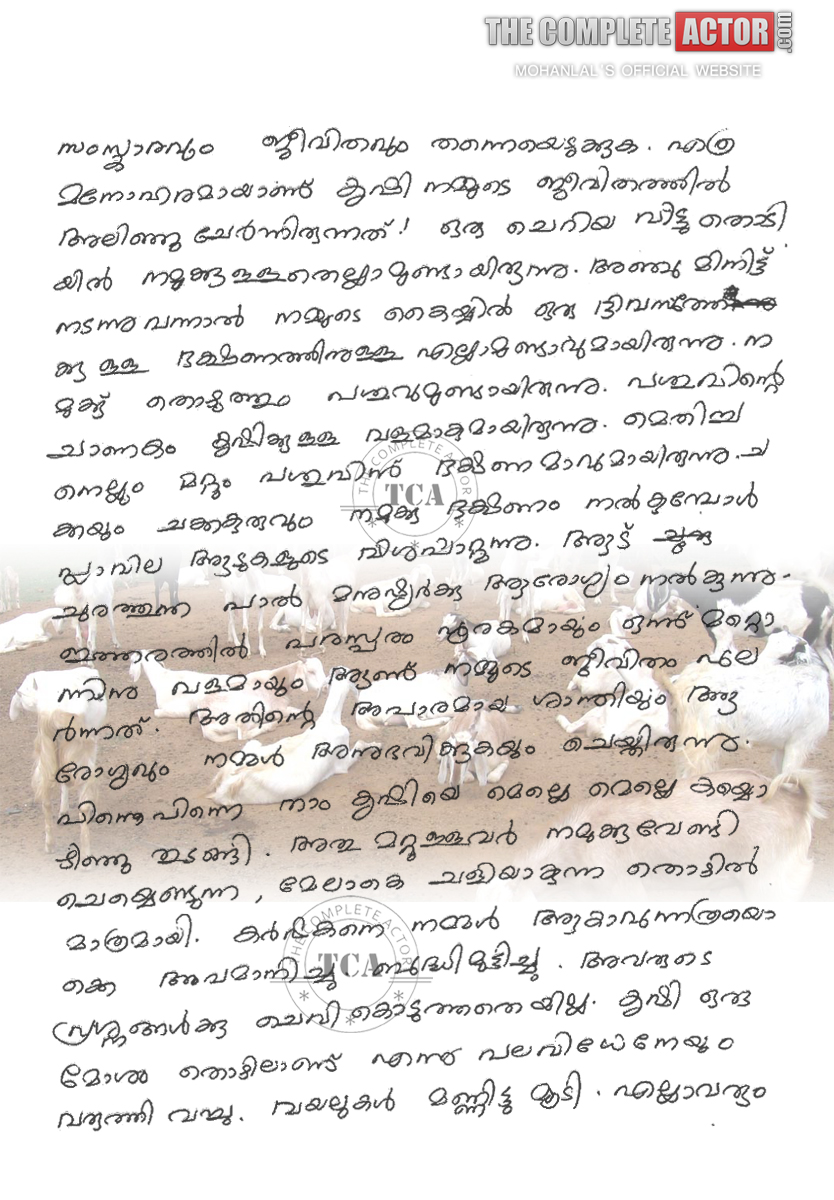 THE COMPLETE ACTOR.com
MOHANLAL'S OFFICIAL WEBSITE
സംസ്കാരവും ജീവിതവും തന്നെയെടുക്കുക. എത്ര
മനോഹരമായാണ് കൃഷി നമ്മുടെ ജീവിതത്തിൽ
അലിഞ്ഞു ചേർന്നിരുന്നത്! ഒരു ചെറിയ വീട്ടു തൊടി
യിൽ നമുക്കുള്ളതെല്ലാമുണ്ടായിരുന്നു. അഞ്ചു മിനിട്ട്
നടന്നു വന്നാൽ നമ്മുടെ കൈയ്യിൽ ഒരു ദിവസത്തേ
ക്കു ള്ള ഭക്ഷണത്തിനുള്ള എല്ലാമുണ്ടാവുമായിരുന്നു. ന
മുക്ക് തൊഴുത്തും പശുവുമുണ്ടായിരുന്നു. പശുവിന്റെ
ചാണകം കൃഷിക്കുള്ള വളമാകുമായിരുന്നു. മെതിച്ച
നെല്ലും മറ്റും പശുവിന് ഭക്ഷണ മാവുമായിരുന്നു. ച
ക്കയും ചക്കകുരുവും നമുക്കു ഭക്ഷണം നൽകുമ്പോൾ
പ്ലാവില ആടുകളുടെ വിശപ്പാറ്റുന്നു. ആട്
ചുരത്തുന്ന പാൽ മനുഷ്യർക്കു ആരോഗ്യം നൽകുന്നു.
ഇത്തരത്തിൽ പരസ്പരം പൂരകമായും ഒന്ന് മറ്റൊ
ന്നിനു വളമായും ആണ് നമ്മുടെ ജീവിതം പുല
ർന്നത്. അതിന്റെ അപാരമായ ശാന്തിയും ആ
രോഗ്യവും നമ്മൾ അനുഭവിക്കുകയും ചെയ്തിരുന്നു.
പിന്നെപിന്നെ നാം കൃഷിയെ മെല്ലെ മെല്ലെ കയ്യൊ
ഴിഞ്ഞു തുടങ്ങി. അതു മറ്റുള്ളവർ നമുക്കുവേണ്ടി
ചെയ്യെണ്ടുന്ന, മേലാകെ ചളിയാകുന്ന തൊഴിൽ
മാത്രമായി. കർഷകനെ നമ്മൾ ആകാവുന്നത്രയൊ
ക്കെ അപമാനിച്ചു ബുദ്ധിമുട്ടിച്ചു. അവരുടെ
പ്രശ്നങ്ങൾക്കു ചെവികൊടുത്തതെയില്ല. കൃഷി ഒരു
മോശം തൊഴിലാണ് എന്ന് പലവിധേനേയും
വരുത്തി വച്ചു. വയലുകൾ മണ്ണിട്ടു മൂടി. എല്ലാവരും
THE COMPLETE ACTOR
TCA
THE COMPLETE ACTOR
TCA